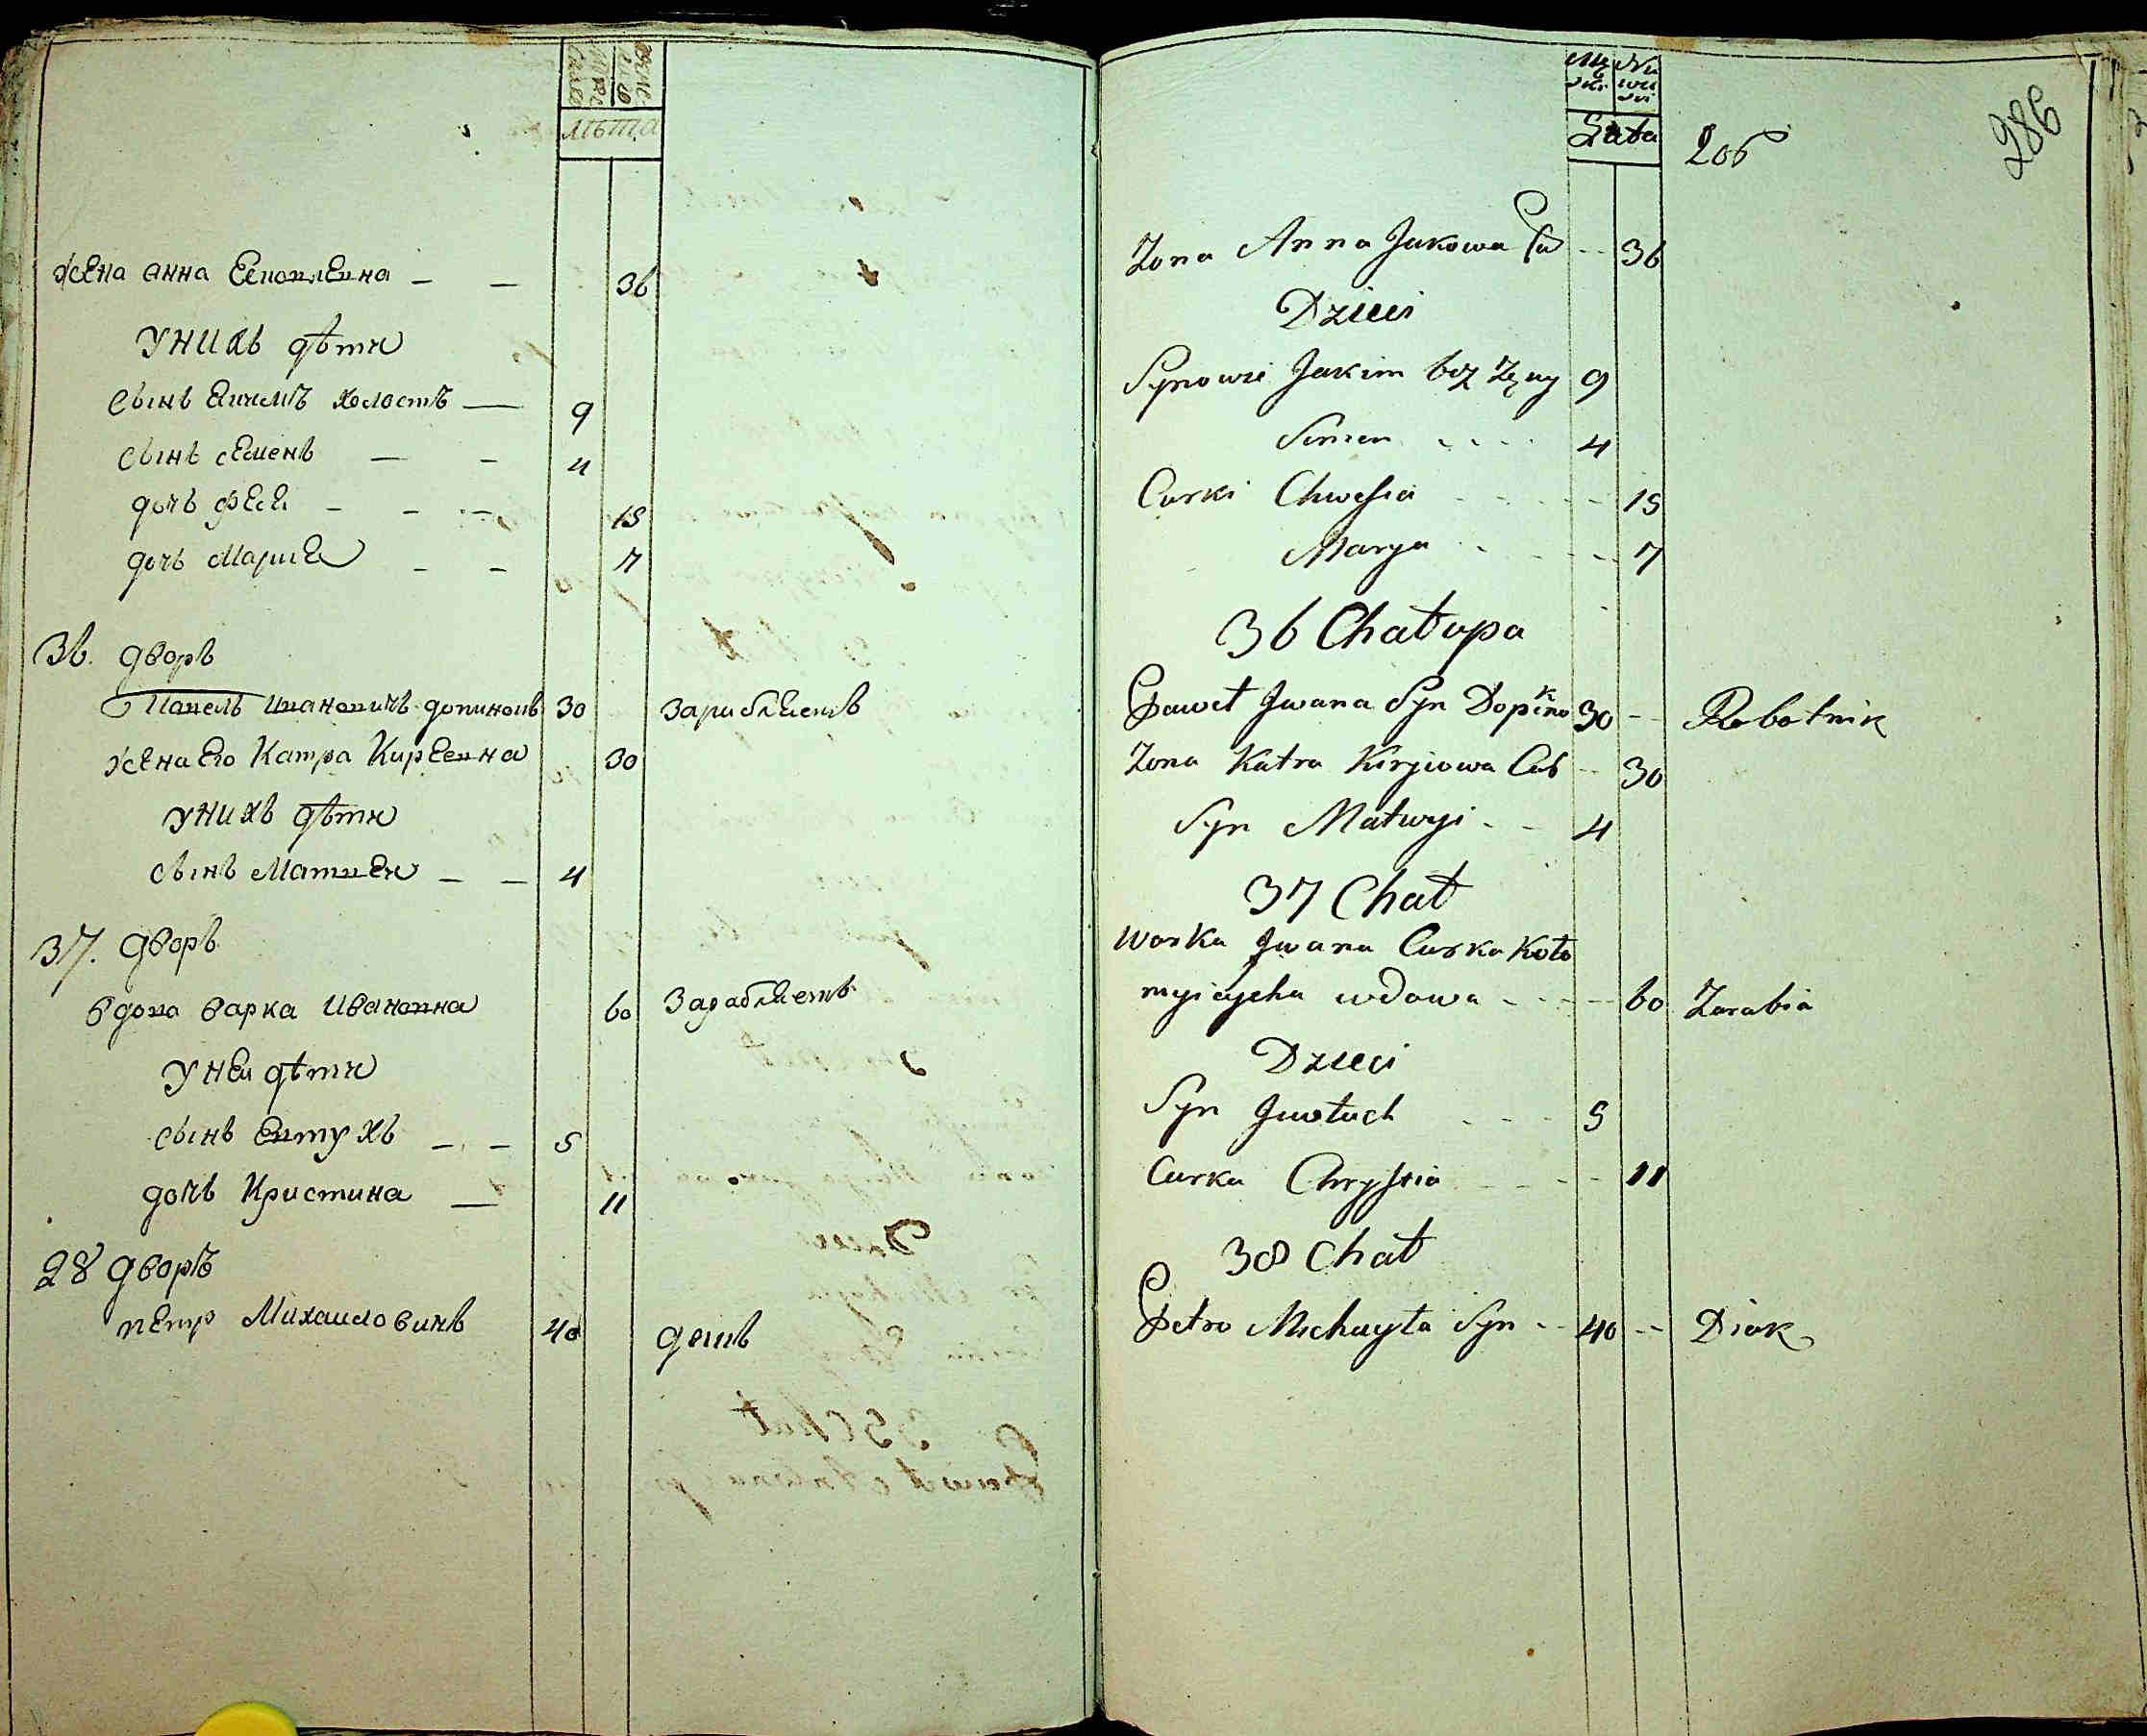 лѣта
жена анна
36
У нихъ дѣти
сынъ холостъ — 9
сынъ семенъ — — 4
дочь — — — 15
дочь Мариѧ — — 7
36. дворъ
Павелъ Ивановичъ 30
жена его Катра 30
У нихъ дѣти
сынъ Матвеи — — 4
37. дворъ
вдова варка Ивановна 60 Зарабляетъ
У неи дѣти
сынъ Евтухъ — — 5
дочь Кристина — 11
28 дворъ
петръ Михаиловичъ 40 дякъ
Lata
206
286
Zona Anna Jakowa Cu -- 36
Dzieci
Synowie Jakim bez Zony 9
Simen 4
Curki Chwesia 15
Marya 7
36 Chałupa
Paweł Jwana Syn 30 -- Robotnik
Zona Katra Kiryiowa Cur -- 30
Syn Matwyi -- 4
37 Chał
Warka Jwana Curka Koło
myicycha wdowa 60 Zarabia
Dzieci
Syn Jwtuch 5
Curka Chrystia 11
38 Chał
Petro Michayła Syn -- 40 -- Diak